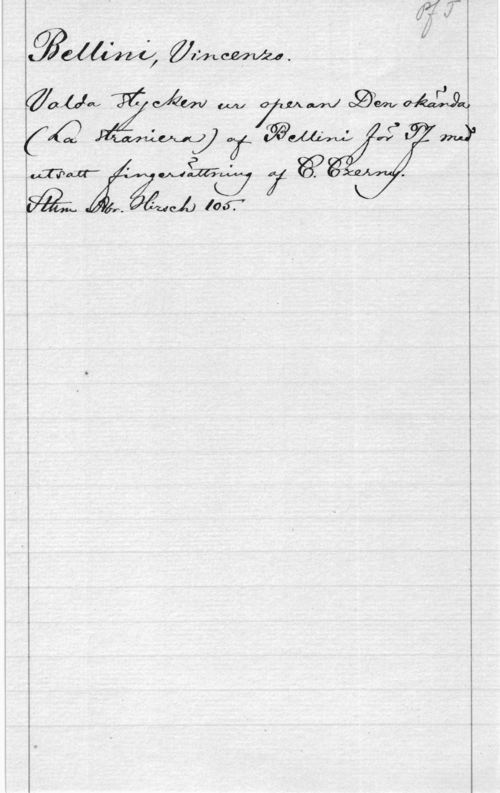 Pf 5
Bellini, Vincenzo.
Valda stycken ur operan Den okända
(La straniera) af Bellini för Pf med
utsatt fingersättning af C. Czerny.
Sthm Abr. Hirsch 105.